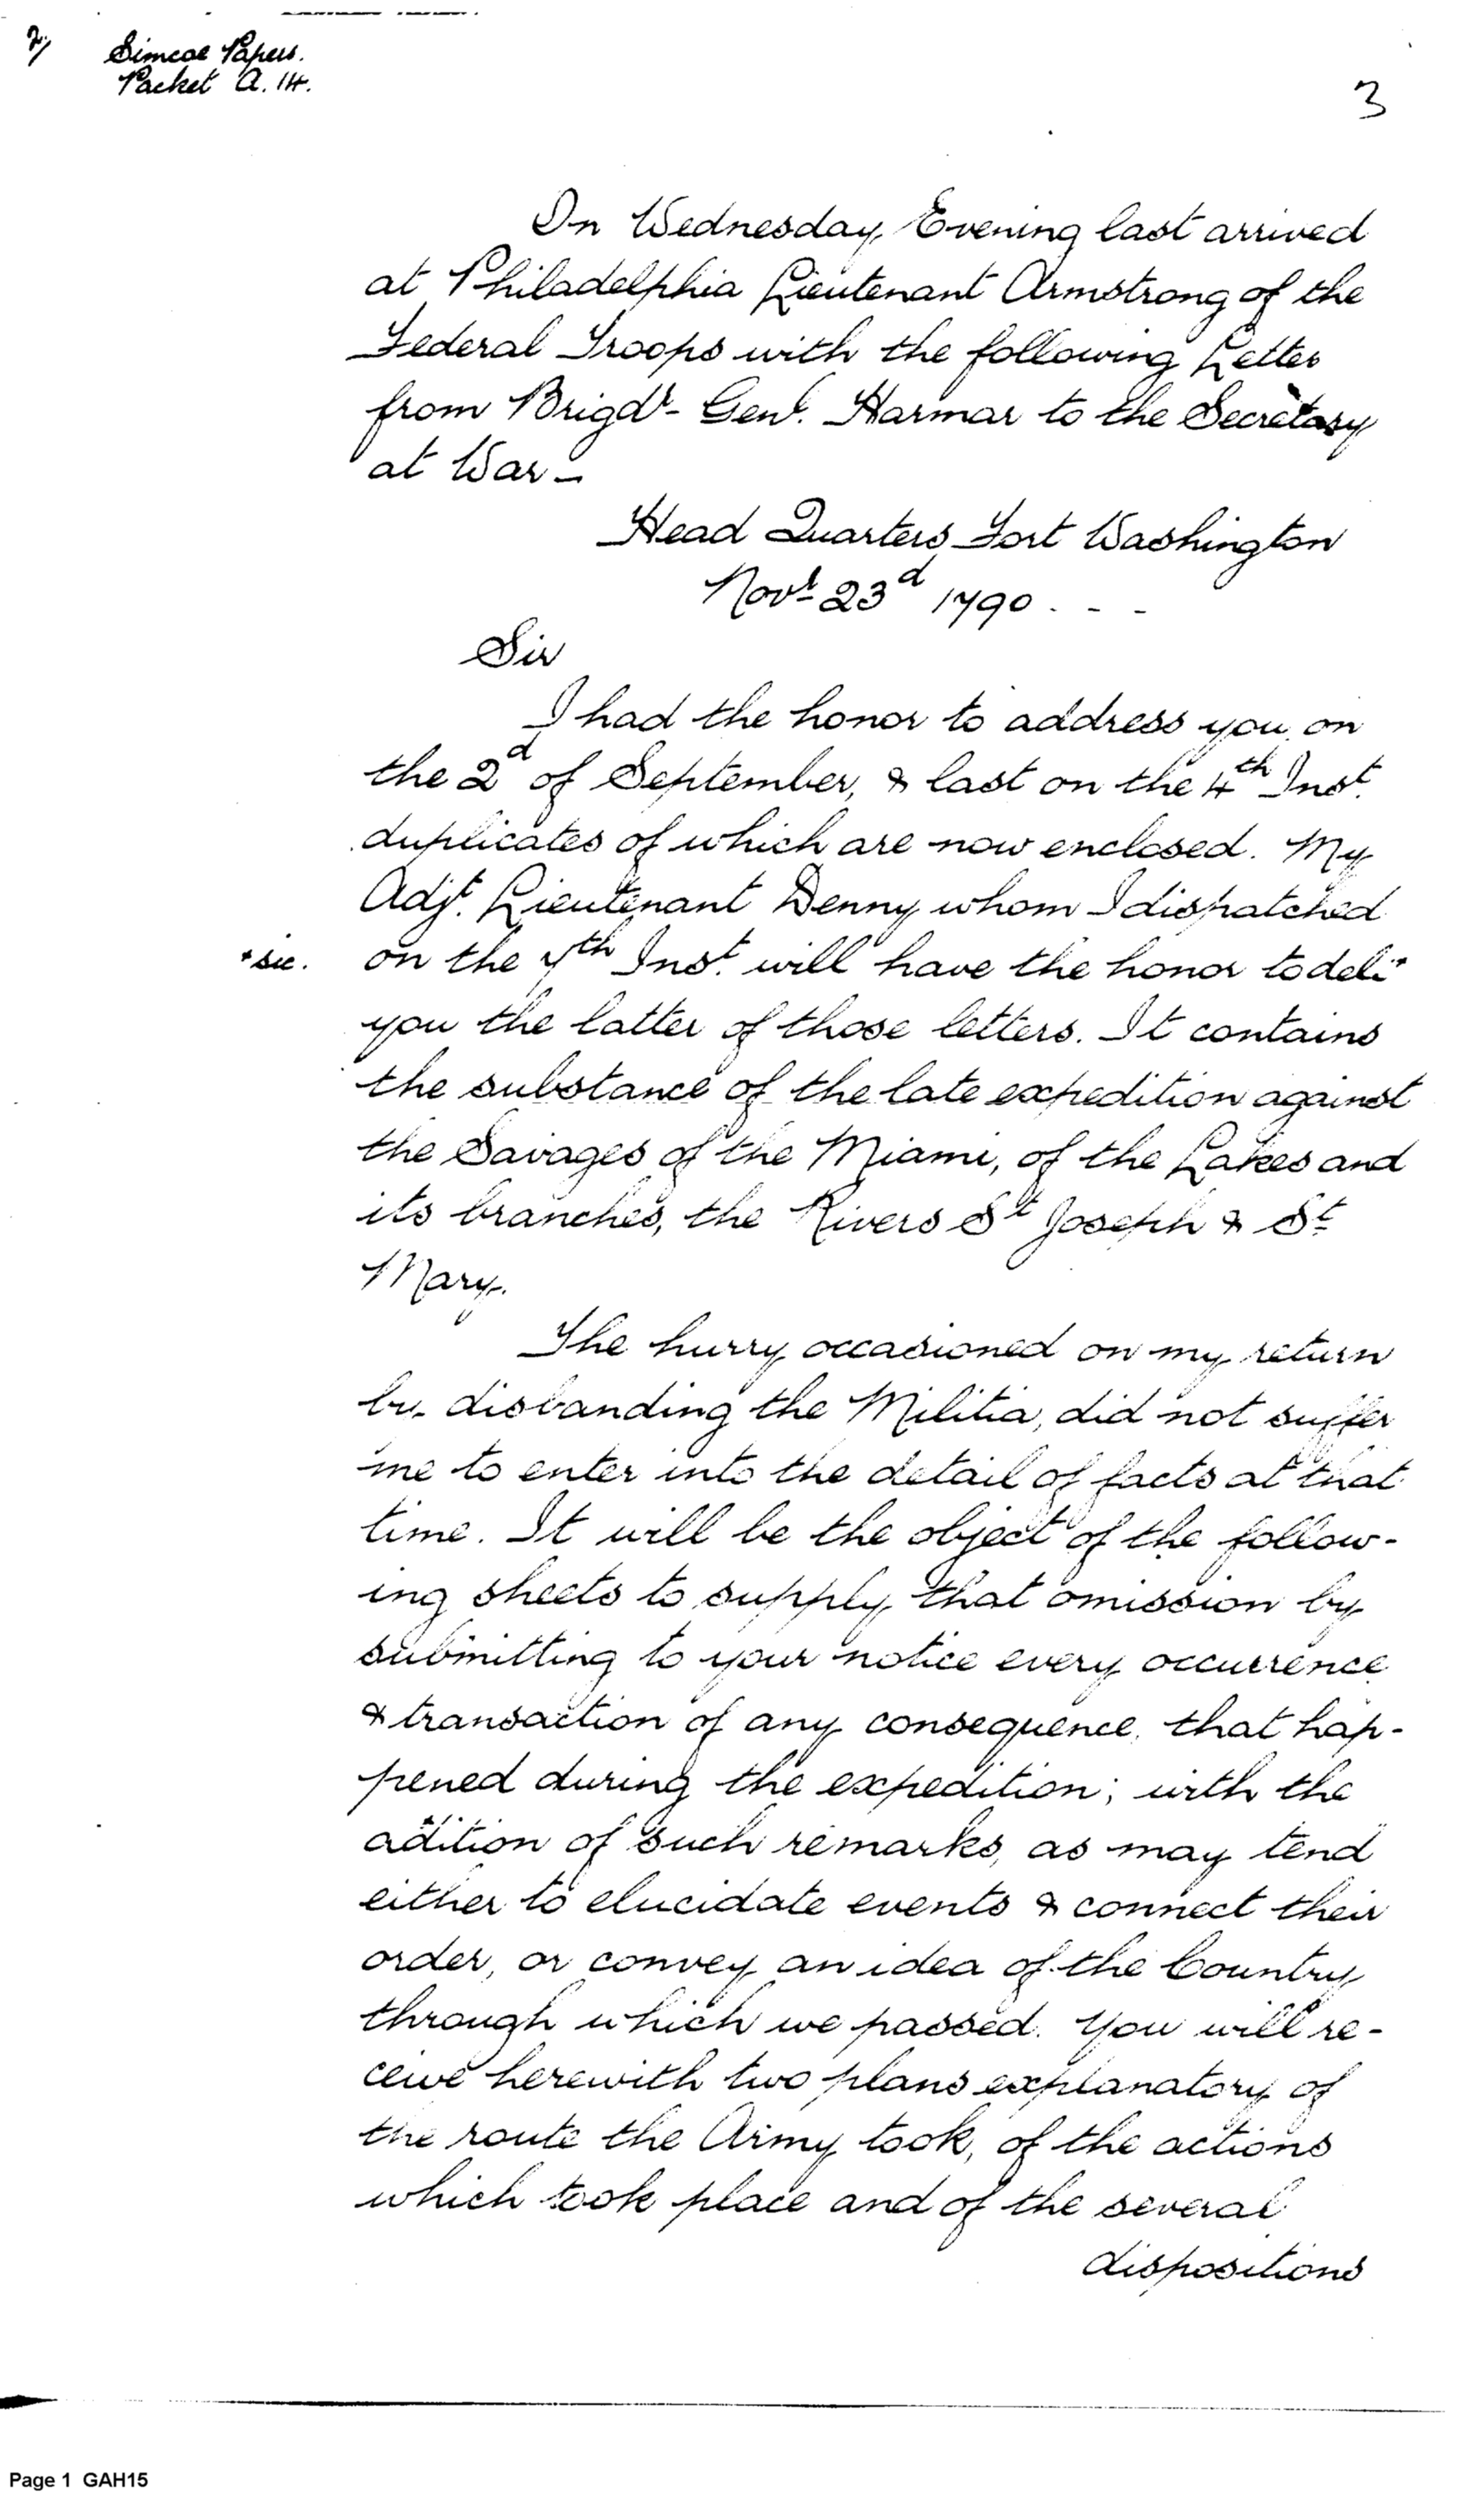 2/
Simcoe Papers.
Packet A. 14.
3
On Wednesday Evening last arrived
at Philadelphia Lieutenant Armstrong of the
Federal Troops with the following Letter
from Brigdr- Genl. Harmar to the Secretary
at War -
Head Quarters Fort Washington
Novr 23d 1790 . - -
Sir
I had the honor to address you on
the 2d of September, & last on the 4th Inst.
duplicates of which are now enclosed. My
Adjt. Lieutenant Denny whom I dispatched
+ sic. on the 7th Inst. will have the honor to deli+
you the latter of those letters. It contains
the substance of the late expedition against
the Savages of the Miami, of the Lakes and
its branches, the Rivers St Joseph & St
Mary.
The hurry occasioned on my return
by disbanding the Militia, did not suffer
me to enter into the detail of facts at that
time. It will be the object of the follow-
ing sheets to supply that omission by
submitting to your notice every occurrence
& transaction of any consequence, that hap-
pened during the expedition; with the
adition of such remarks, as may tend
either to elucidate events & connect their
order, or convey an idea of the Country
through which we passed. You will re-
ceive herewith two plans explanatory of
the route the Army took, of the actions
which took place and of the several
dispositions
Page 1 GAH15